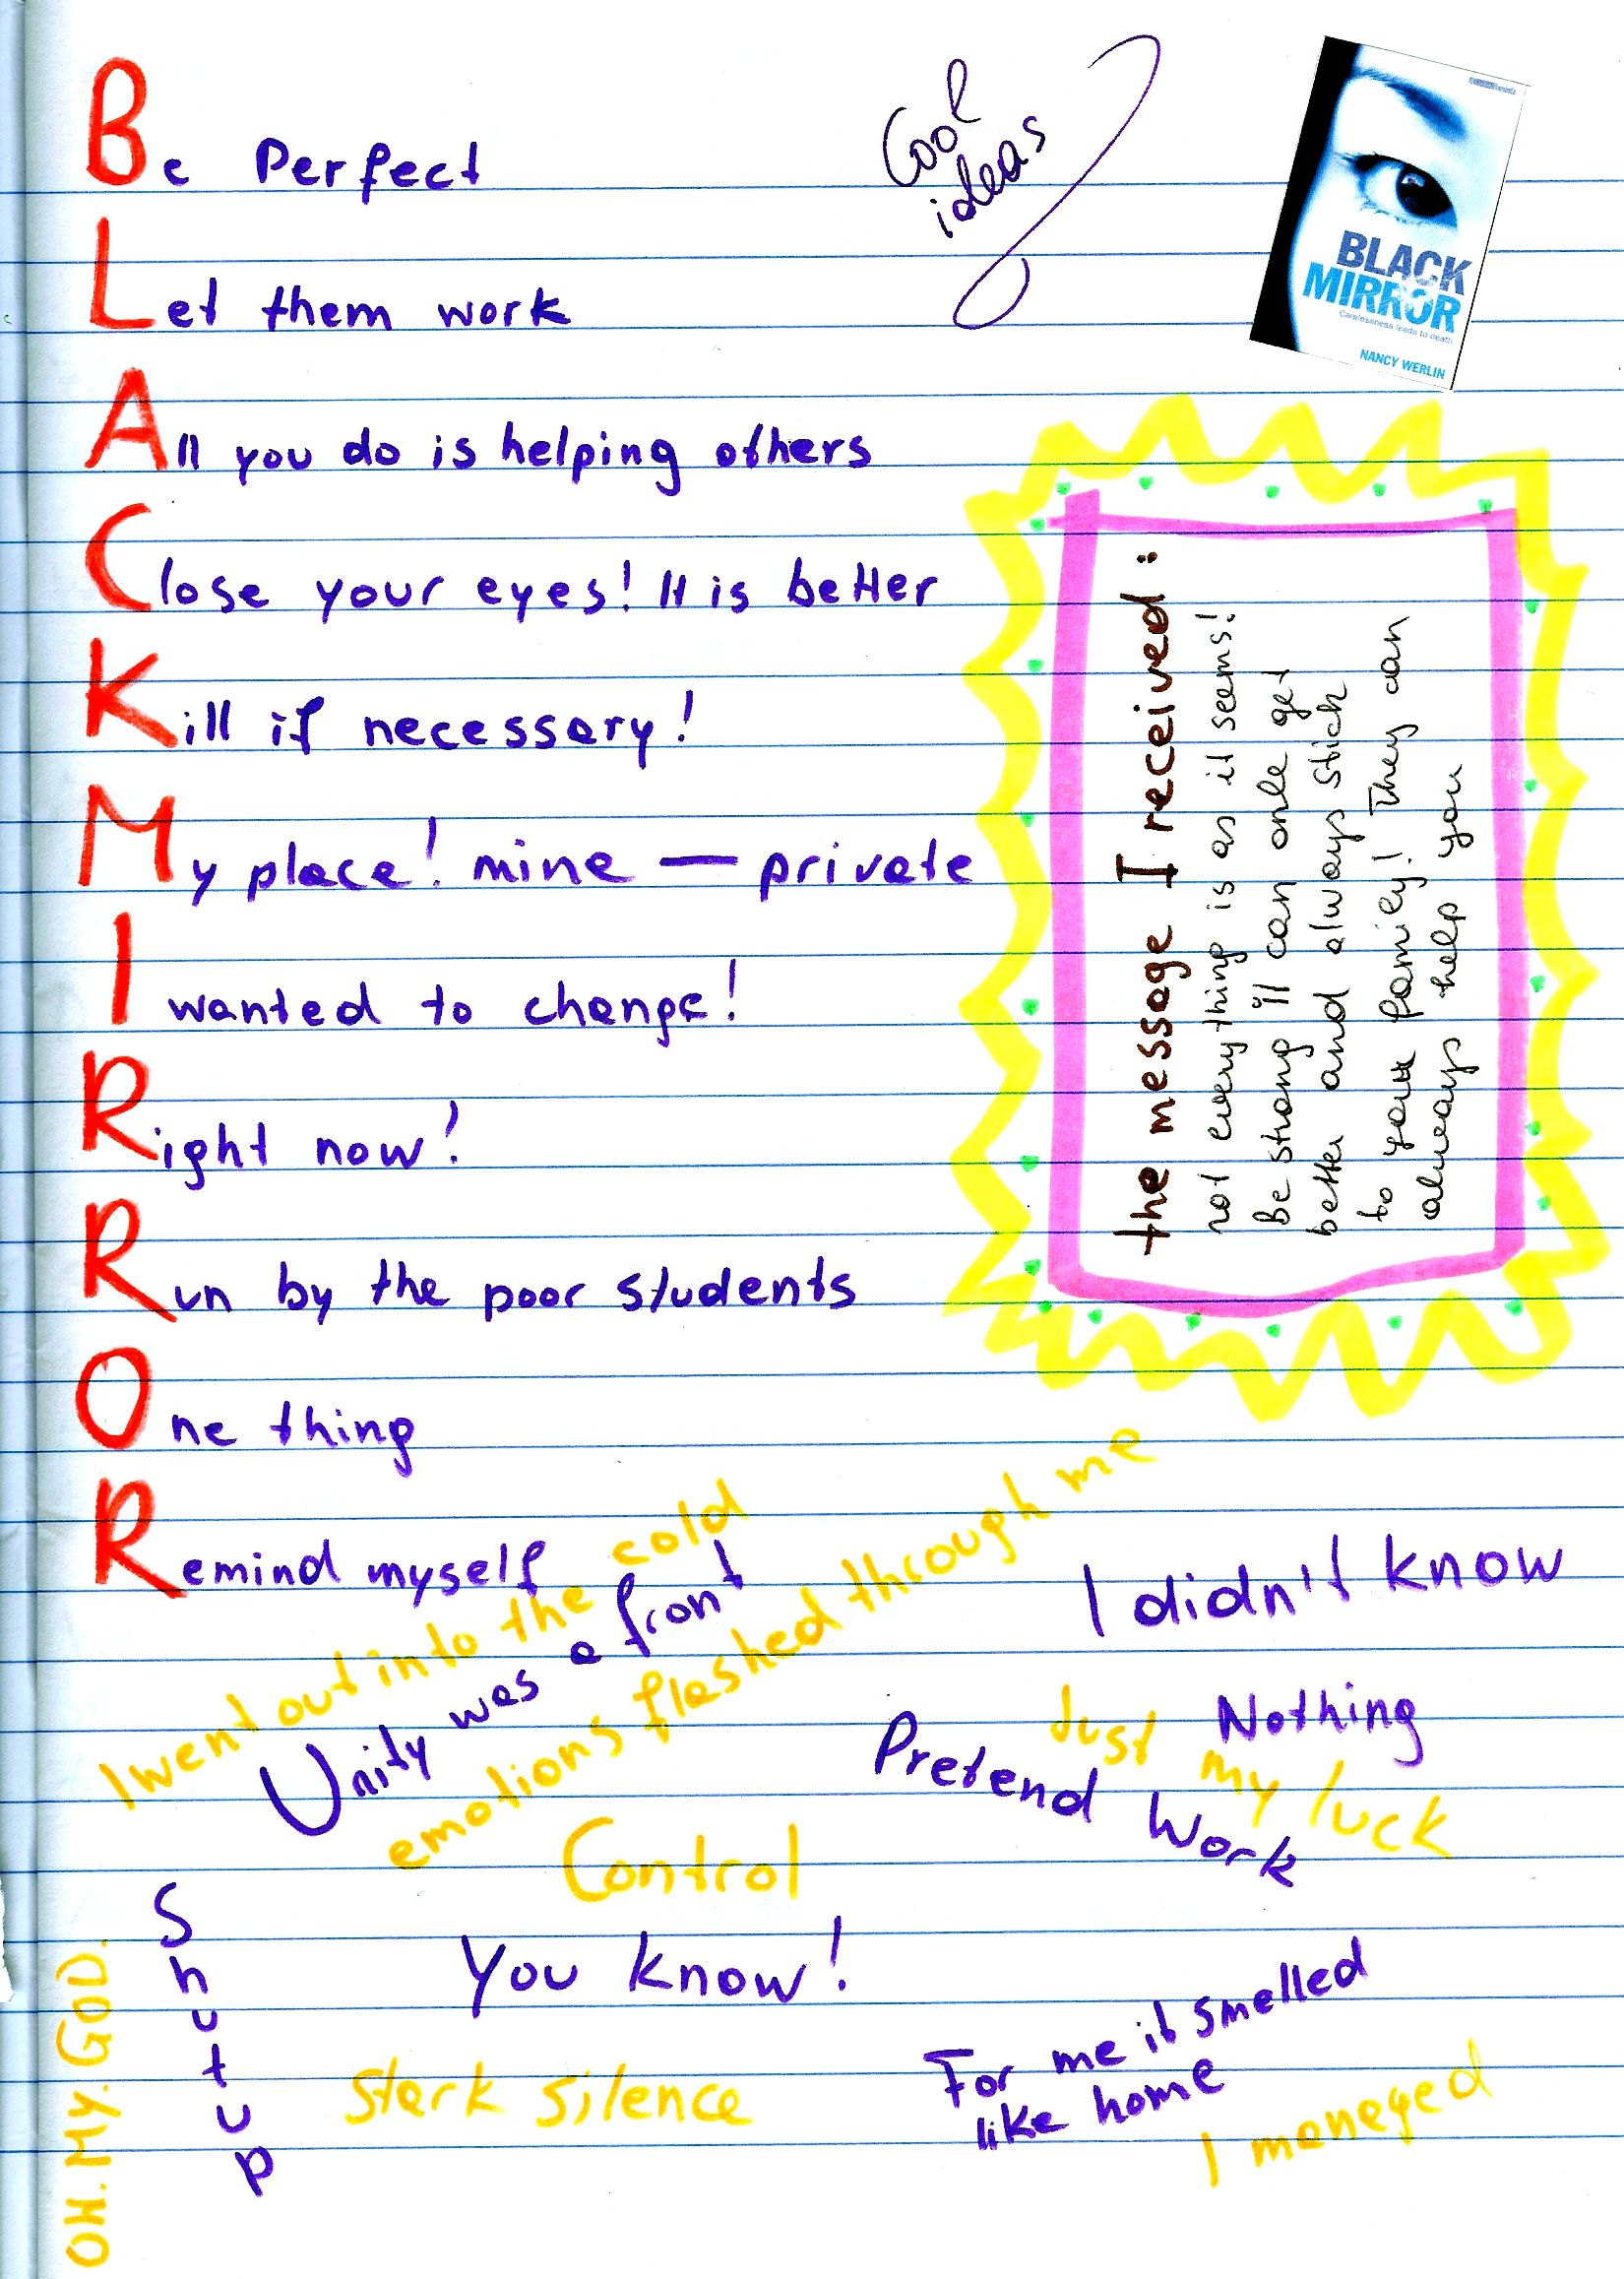 Be Perfect
Cool
ideas
Let them work
BLACK
MIRROR
Carelessness leads to death
NANCY WERLIN
All you do is helping others
Close your eyes! It is better
Kill if necessary!
My place! mine — private
I wanted to change!
Right now!
Run by the poor students
One thing
Remind myself
the message I received:
not everything is as it seems!
Be strong it'll can onle get
better and always stick
to your family! They can
always help you
I went out into the cold
Unity was a front
emotions flashed through me
I didn't know
Nothing
Just my luck
Pretend Work
Control
Shut up
You know!
OH. MY. GOD.
Stark silence
For me it smelled
like home
I maneged